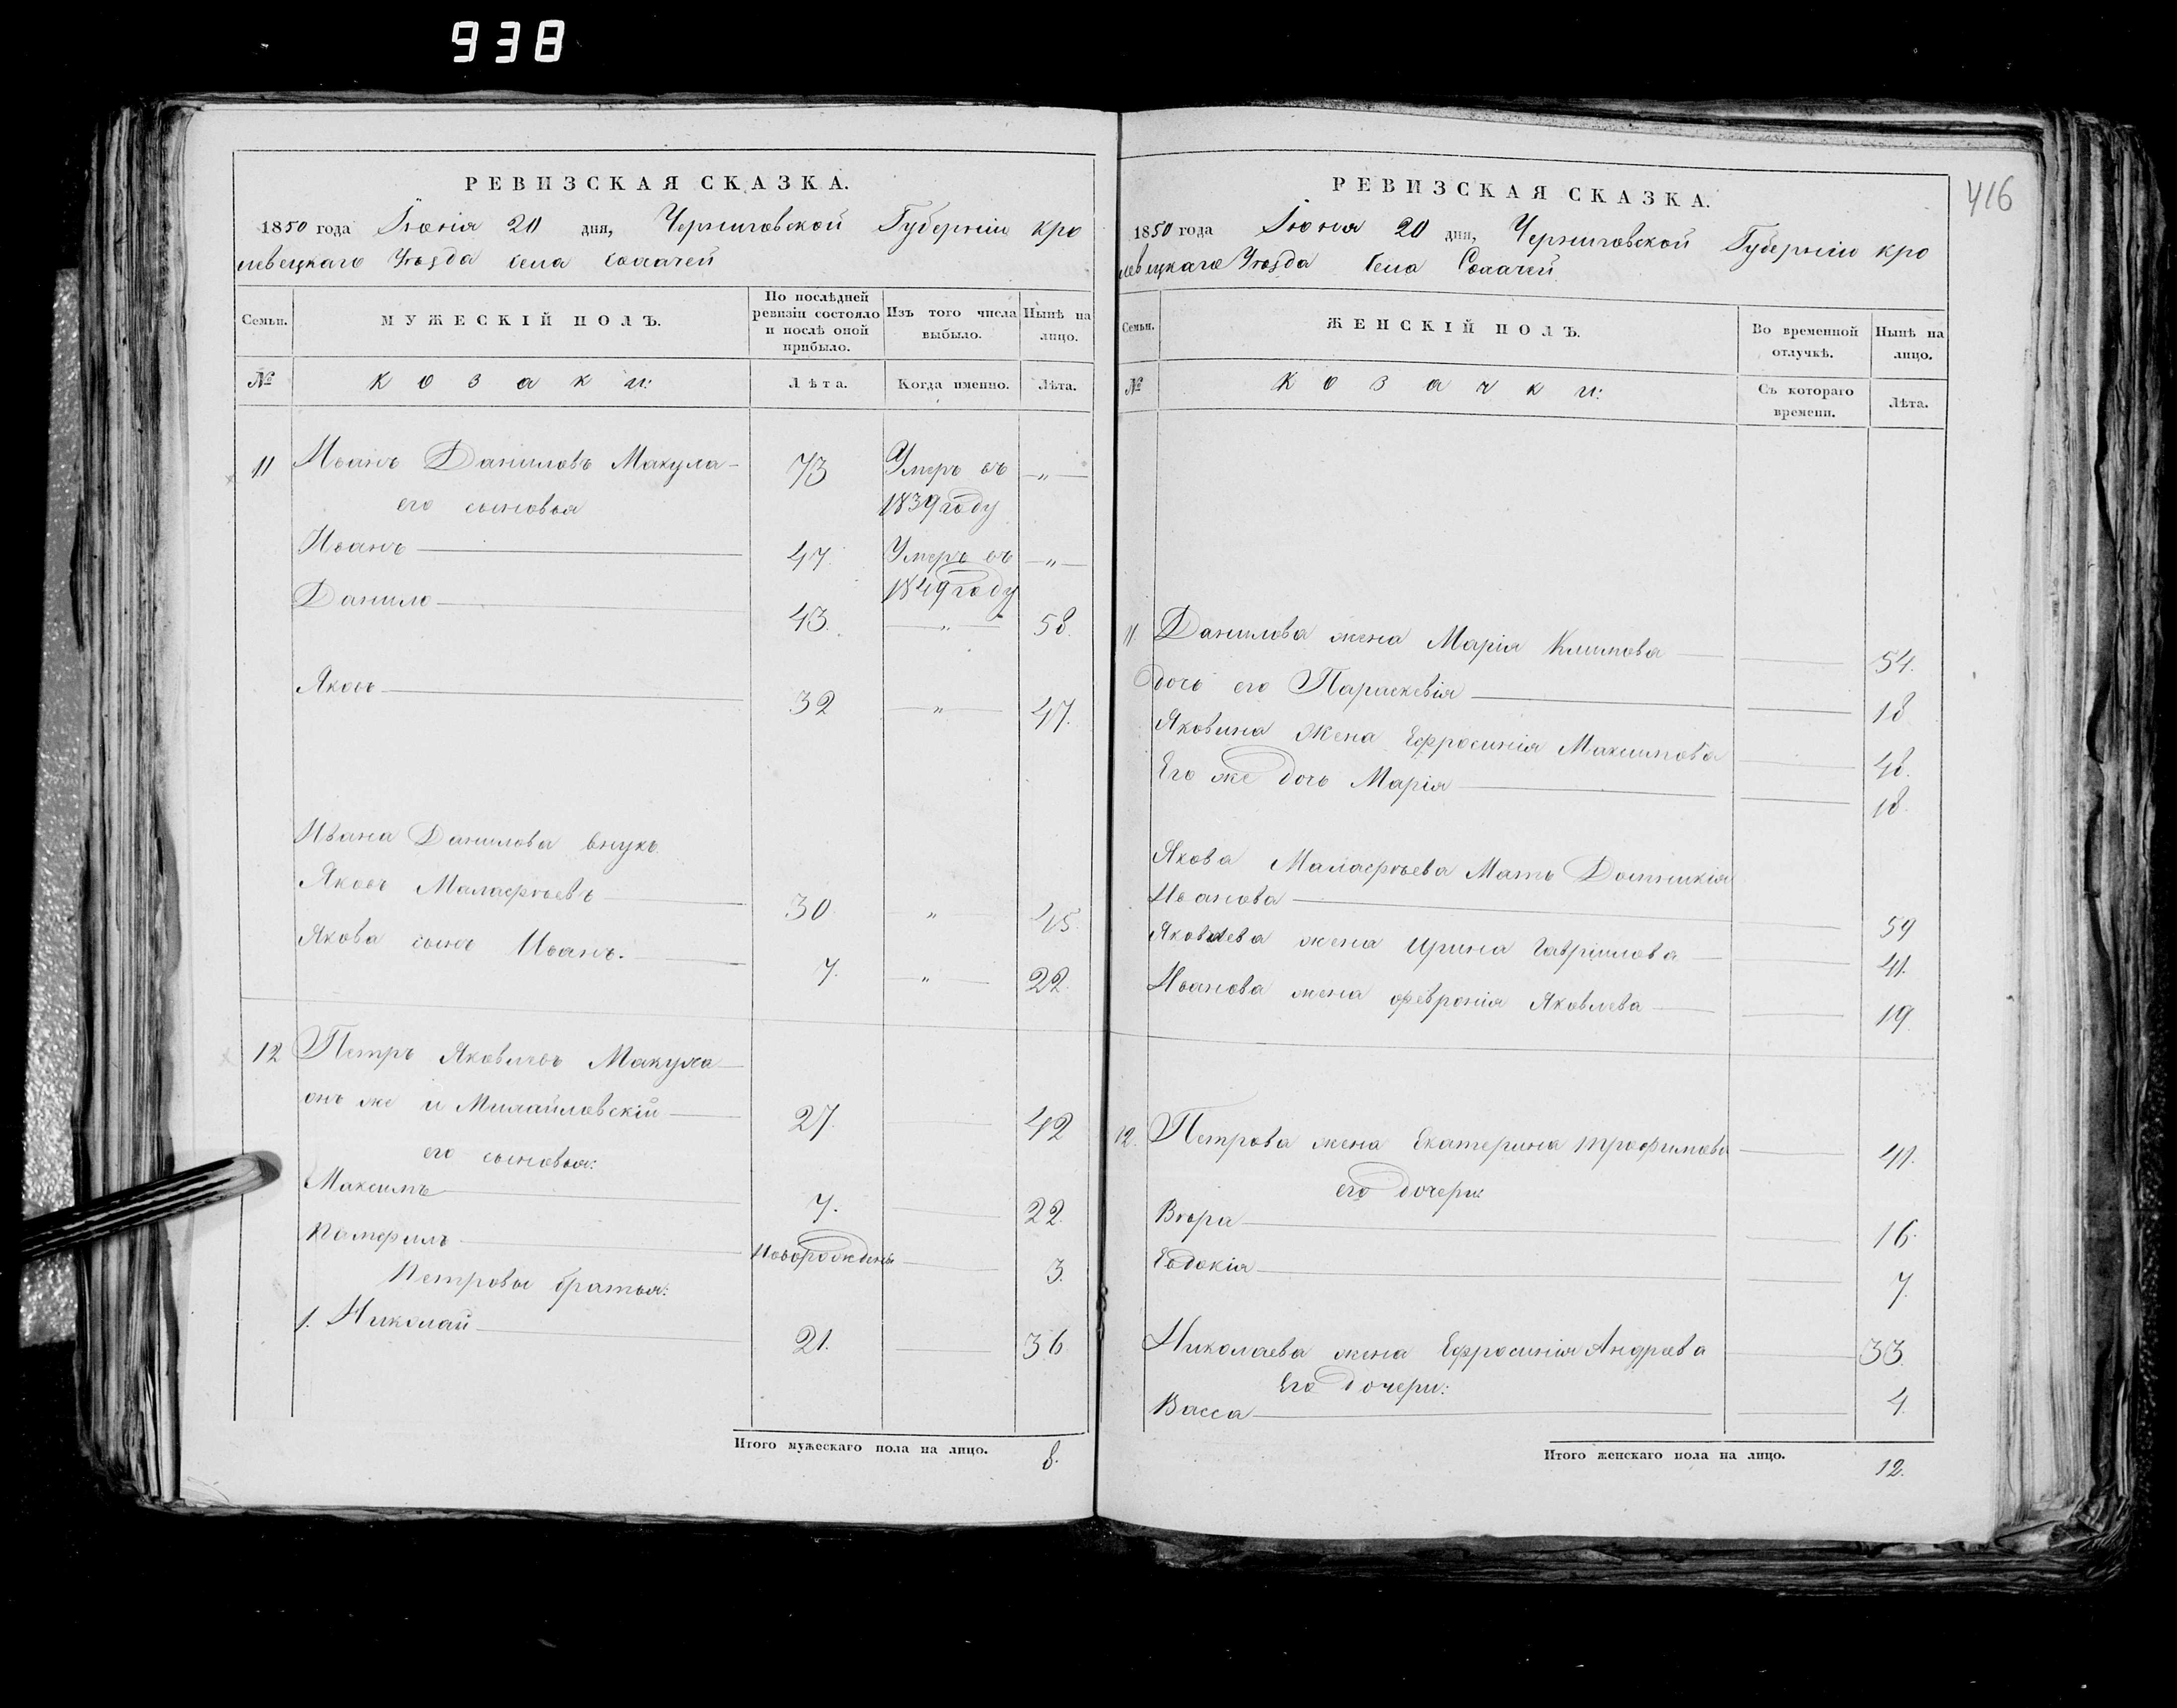 938
РЕВИЗСКАЯ СКАЗКА.
1850 года Іюнія 20 дня, Черниговской Губерніи кро
левецкаго Уѣзда села
Семьи.
МУЖЕСКІЙ ПОЛЪ.
По послѣдней ревизіи состояло и послѣ оной прибыло.
Изъ того числа выбыло.
Нынѣ на лицо.
№
козаки:
Лѣта.
Когда именно.
Лѣта.
11 Иванъ Даниловъ Макула 73 Умеръ въ 1839 году „
его сыновья
Иванъ 47. Умеръ въ 1849 году „
Данило 43. „ 58.
Яковъ 32 „ 47.
Ивана Данилова внукъ
Яковъ Маласфѣевъ 30 „ 45.
Якова сынъ Иванъ. 7. „ 22.
12 Петръ Яковлевъ Макула
онъ же и 27. 42
его сыновья:
Максимъ 7. 22.
Памфилъ Новорожденъ 3.
Петровы братья:
1. Николай 21. 36
Итого мужескаго пола на лицо. 8.
416
РЕВИЗСКАЯ СКАЗКА.
1850 года Іюнія 20 дня, Черниговской Губерніи кро
левецкаго Уѣзда Села
Семьи.
ЖЕНСКІЙ ПОЛЪ.
Во временной отлучкѣ.
Нынѣ на лицо.
№
козачки:
Съ котораго времени.
Лѣта.
11. Данилова жена Марія Климова 54.
дочь его Параскевія 18
Яковина Жена Ефросинія Максимова 48.
Его же дочь Марія 18.
Якова Маласфѣева Мать Домникія
Иванова 59
Яковлева жена Ирина Гавриилова 41.
Иванова жена февронія Яковлева 19
12. Петрова жена Екатерина трофимова 41.
его дочери:
Вѣра 16.
Евдокія 7.
Николаева жена Ефросинія Андрѣева 33.
Его дочери:
Васса 4.
Итого женскаго пола на лицо. 12.